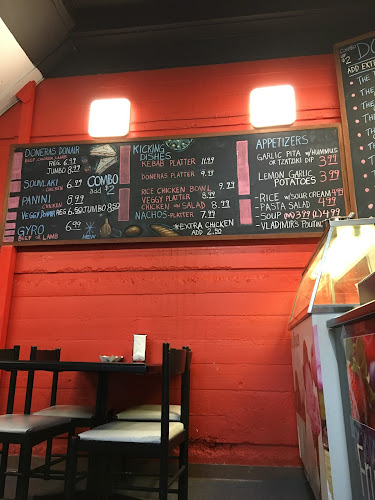 DONERAS DONAIR
BEEF CHICKEN LAMB REG 6.99
JUMBO 8.99
SOUVLAKI 6.99
CHICKEN
PANINI 8.99
CHICKEN
VEGGY DONAIR REG 6.50 JUMBO 8.50
GYRO 6.99
BEEF OR LAMB
COMBO
add $2
NEW
KICKING
DISHES
KEBAB PLATTER 11.99
DONERAS PLATTER 9.99
RICE CHICKEN BOWL 9.99
VEGGY PLATTER 8.99
CHICKEN ON SALAD 8.99
NACHOS-PLATTER 7.99
*EXTRA CHICKEN
ADD 2.50
APPETIZERS
GARLIC PITA W/HUMMUS
OR TZATZIKI DIP 3.99
LEMON GARLIC
POTATOES 3.99
-RICE W/SOUR CREAM 4.99
-PASTA SALAD 4.99
-SOUP (M) 3.99 (L) 4.99
-VLADIMIR'S POUTINE
COMBO
$2
ADD EXTR